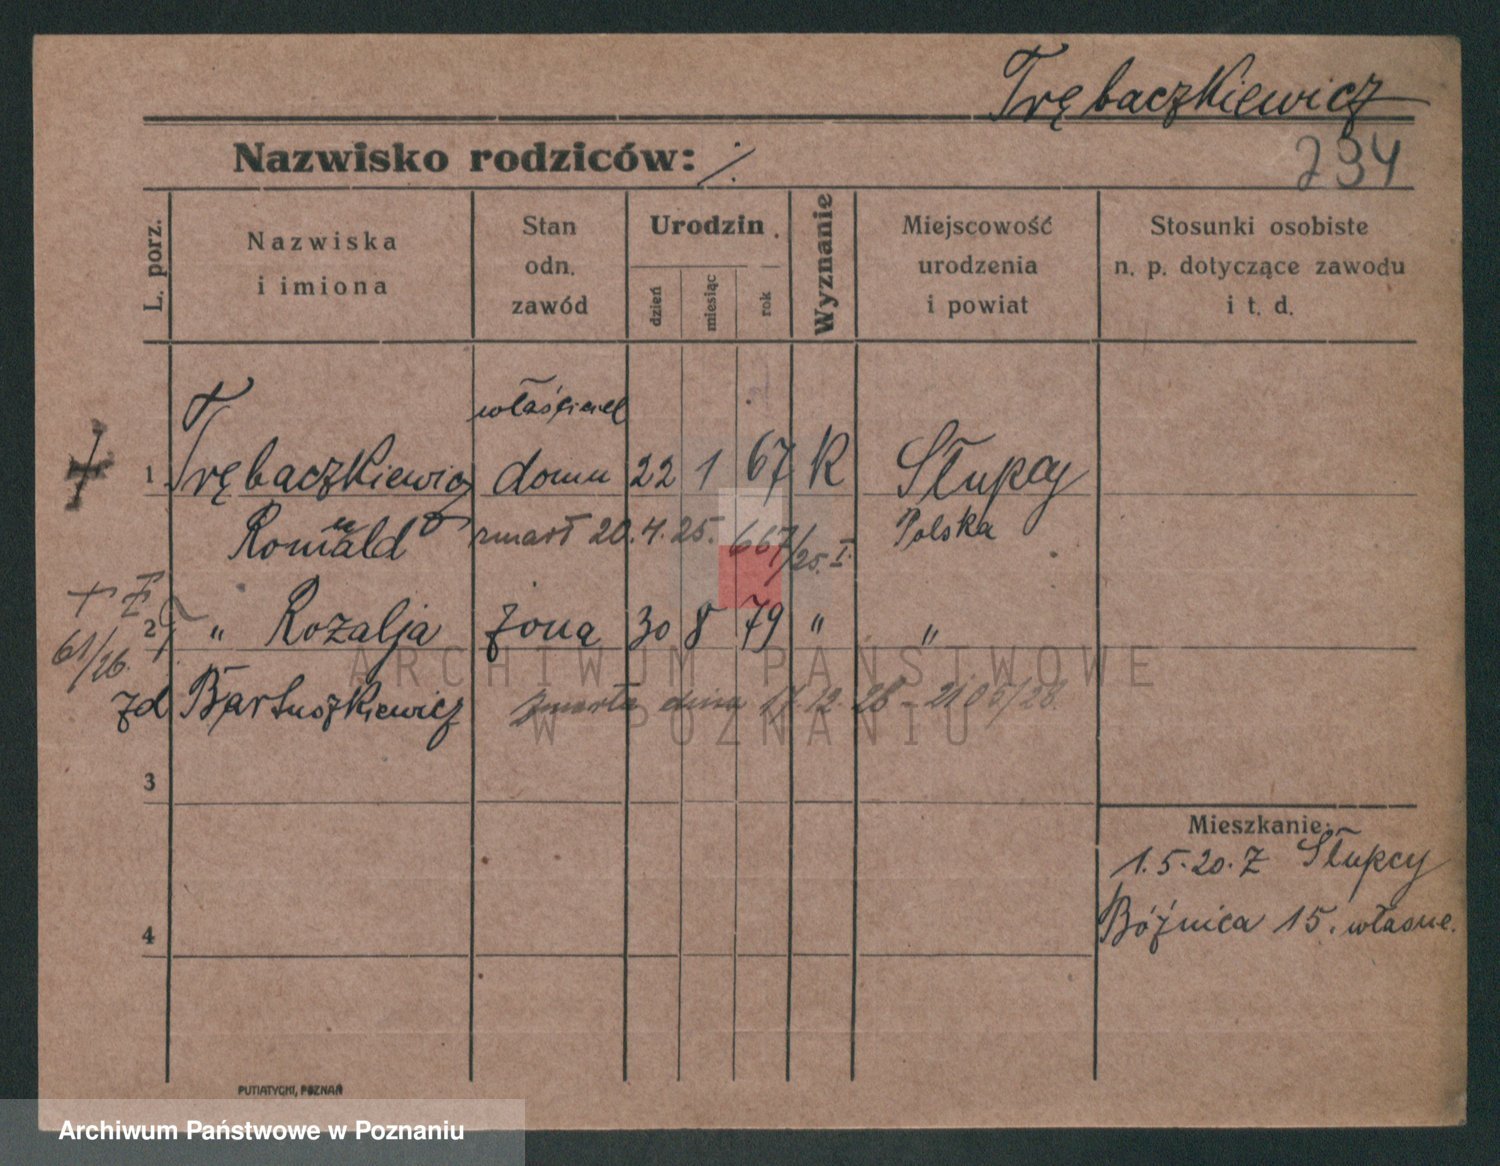 Trębaczkiewicz
Nazwisko rodziców: ./.
234
L. porz.
Nazwiska
i imiona
Stan
odn.
zawód
Urodzin
dzień
miesiąc
rok
Wyznanie
Miejscowość
urodzenia
i powiat
Stosunki osobiste
n. p. dotyczące zawodu
i t. d.
właściciel
1 Trębaczkiewicz domu 22 1 67 K Słupcy
Romuald zmarł 20.4.25. 667/25. I. Polska
+ Z
2 " Rozalja żona 30 8 79 " "
61/26.
zd Bartuszkiewicz zmarła dnia 17.12.28 - 2105/28.
3
Mieszkanie:
1.5.20. Z Słupcy
Bóźnica 15. własne.
4
PUTIATYCKI, POZNAŃ
ARCHIWUM PAŃSTWOWE
W POZNANIU
Archiwum Państwowe w Poznaniu